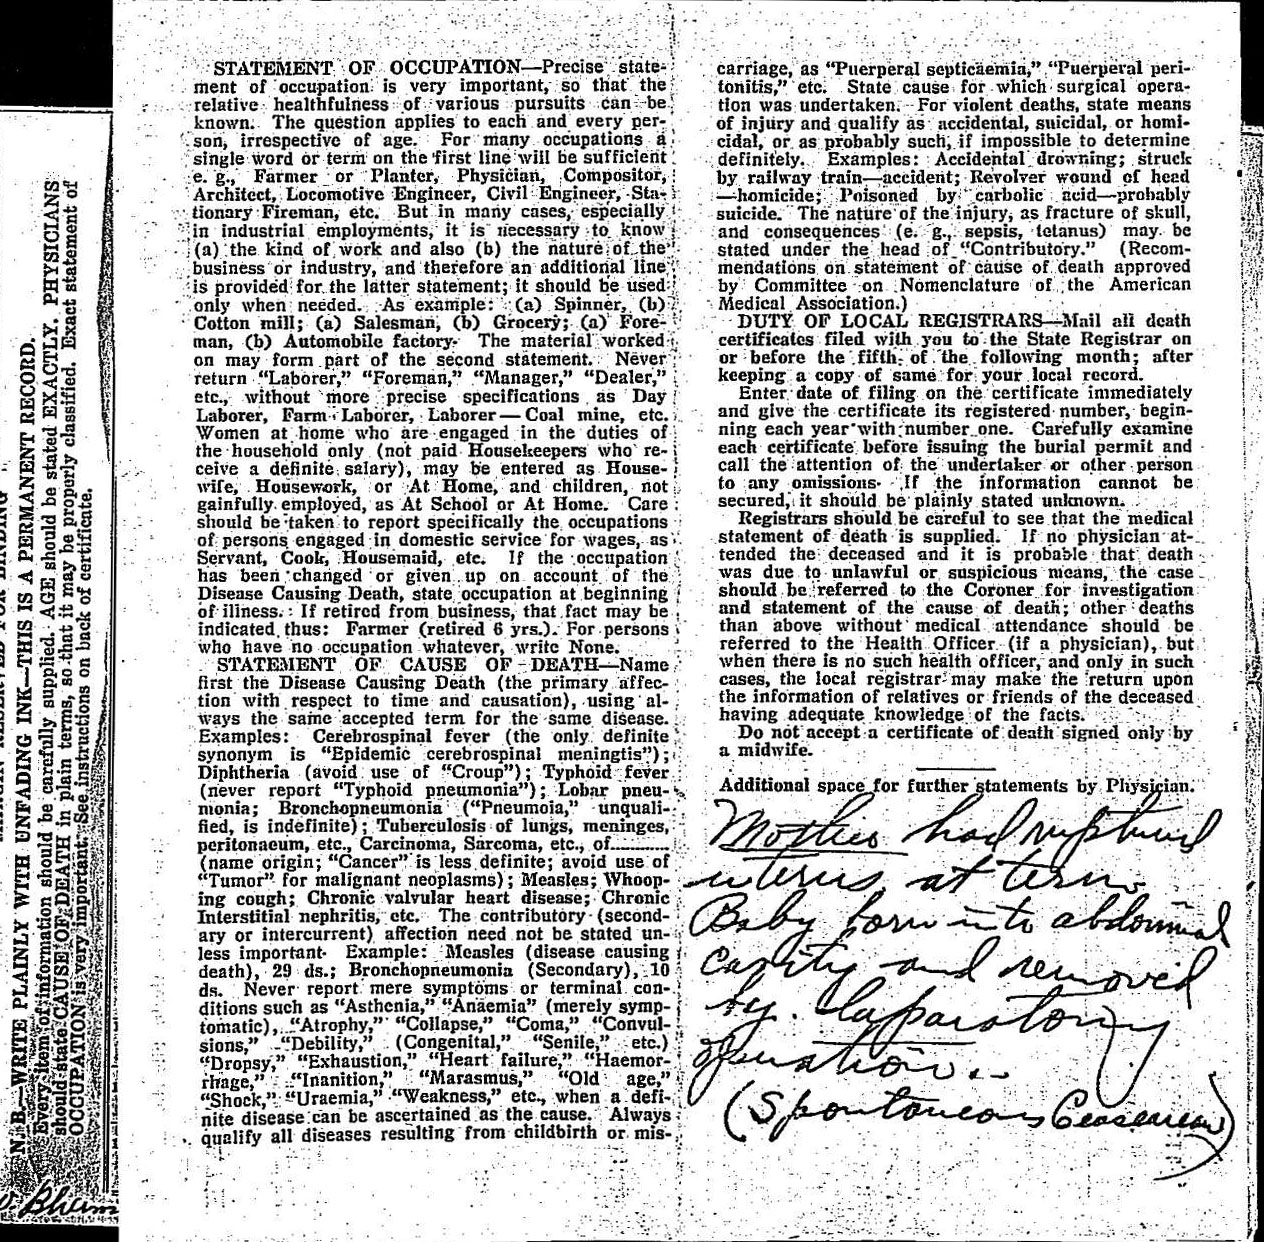 STATEMENT OF OCCUPATION—Precise state-
ment of occupation is very important, so that the
relative healthfulness of various pursuits can be
known. The question applies to each and every per-
son, irrespective of age. For many occupations a
single word or term on the first line will be sufficient
e. g., Farmer or Planter, Physician, Compositor,
Architect, Locomotive Engineer, Civil Engineer, Sta-
tionary Fireman, etc. But in many cases, especially
in industrial employments, it is necessary to know
(a) the kind of work and also (b) the nature of the
business or industry, and therefore an additional line
is provided for the latter statement; it should be used
only when needed. As example: (a) Spinner, (b)
Cotton mill; (a) Salesman, (b) Grocery; (a) Fore-
man, (b) Automobile factory. The material worked
on may form part of the second statement. Never
return "Laborer," "Foreman," "Manager," "Dealer,"
etc., without more precise specifications as Day
Laborer, Farm Laborer, Laborer—Coal mine, etc.
Women at home who are engaged in the duties of
the household only (not paid Housekeepers who re-
ceive a definite salary), may be entered as House-
wife, Housework, or At Home, and children, not
gainfully employed, as At School or At Home. Care
should be taken to report specifically the occupations
of persons engaged in domestic service for wages, as
Servant, Cook, Housemaid, etc. If the occupation
has been changed or given up on account of the
Disease Causing Death, state occupation at beginning
of illness. If retired from business, that fact may be
indicated thus: Farmer (retired 6 yrs.). For persons
who have no occupation whatever, write None.
STATEMENT OF CAUSE OF DEATH—Name
first the Disease Causing Death (the primary affec-
tion with respect to time and causation), using al-
ways the same accepted term for the same disease.
Examples: Cerebrospinal fever (the only definite
synonym is "Epidemic cerebrospinal meningtis");
Diphtheria (avoid use of "Croup"); Typhoid fever
(never report "Typhoid pneumonia"); Lobar pneu-
monia; Bronchopneumonia ("Pneumoia," unquali-
fied, is indefinite); Tuberculosis of lungs, meninges,
peritonaeum, etc., Carcinoma, Sarcoma, etc., of..........
(name origin; "Cancer" is less definite; avoid use of
"Tumor" for malignant neoplasms); Measles; Whoop-
ing cough; Chronic valvular heart disease; Chronic
Interstitial nephritis, etc. The contributory (second-
ary or intercurrent) affection need not be stated un-
less important. Example: Measles (disease causing
death), 29 ds.; Bronchopneumonia (Secondary), 10
ds. Never report mere symptoms or terminal con-
ditions such as "Asthenia," "Anaemia" (merely symp-
tomatic), "Atrophy," "Collapse," "Coma," "Convul-
sions," "Debility," (Congenital," "Senile," etc.)
"Dropsy," "Exhaustion," "Heart failure," "Haemor-
rhage," "Inanition," "Marasmus," "Old age,"
"Shock," "Uraemia," "Weakness," etc., when a defi-
nite disease can be ascertained as the cause. Always
qualify all diseases resulting from childbirth or mis-
carriage, as "Puerperal septicaemia," "Puerperal peri-
tonitis," etc. State cause for which surgical opera-
tion was undertaken. For violent deaths, state means
of injury and qualify as accidental, suicidal, or homi-
cidal, or as probably such, if impossible to determine
definitely. Examples: Accidental drowning; struck
by railway train—accident; Revolver wound of head
—homicide; Poisoned by carbolic acid—probably
suicide. The nature of the injury, as fracture of skull,
and consequences (e. g., sepsis, tetanus) may be
stated under the head of "Contributory." (Recom-
mendations on statement of cause of death approved
by Committee on Nomenclature of the American
Medical Association.)
DUTY OF LOCAL REGISTRARS—Mail all death
certificates filed with you to the State Registrar on
or before the fifth of the following month; after
keeping a copy of same for your local record.
Enter date of filing on the certificate immediately
and give the certificate its registered number, begin-
ning each year with number one. Carefully examine
each certificate before issuing the burial permit and
call the attention of the undertaker or other person
to any omissions. If the information cannot be
secured, it should be plainly stated unknown.
Registrars should be careful to see that the medical
statement of death is supplied. If no physician at-
tended the deceased and it is probable that death
was due to unlawful or suspicious means, the case
should be referred to the Coroner for investigation
and statement of the cause of death; other deaths
than above without medical attendance should be
referred to the Health Officer (if a physician), but
when there is no such health officer, and only in such
cases, the local registrar may make the return upon
the information of relatives or friends of the deceased
having adequate knowledge of the facts.
Do not accept a certificate of death signed only by
a midwife.
Additional space for further statements by Physician.
Mother had ruptured
uterus at term
Baby born into abdominal
cavity and removed
by laparotomy
operation.
(Spontaneous Ceasarean)
N. B.—WRITE PLAINLY WITH UNFADING INK—THIS IS A PERMANENT RECORD.
Every item of information should be carefully supplied. AGE should be stated EXACTLY. PHYSICIANS
should state CAUSE OF DEATH in plain terms, so that it may be properly classified. Exact statement of
OCCUPATION is very important. See instructions on back of certificate.